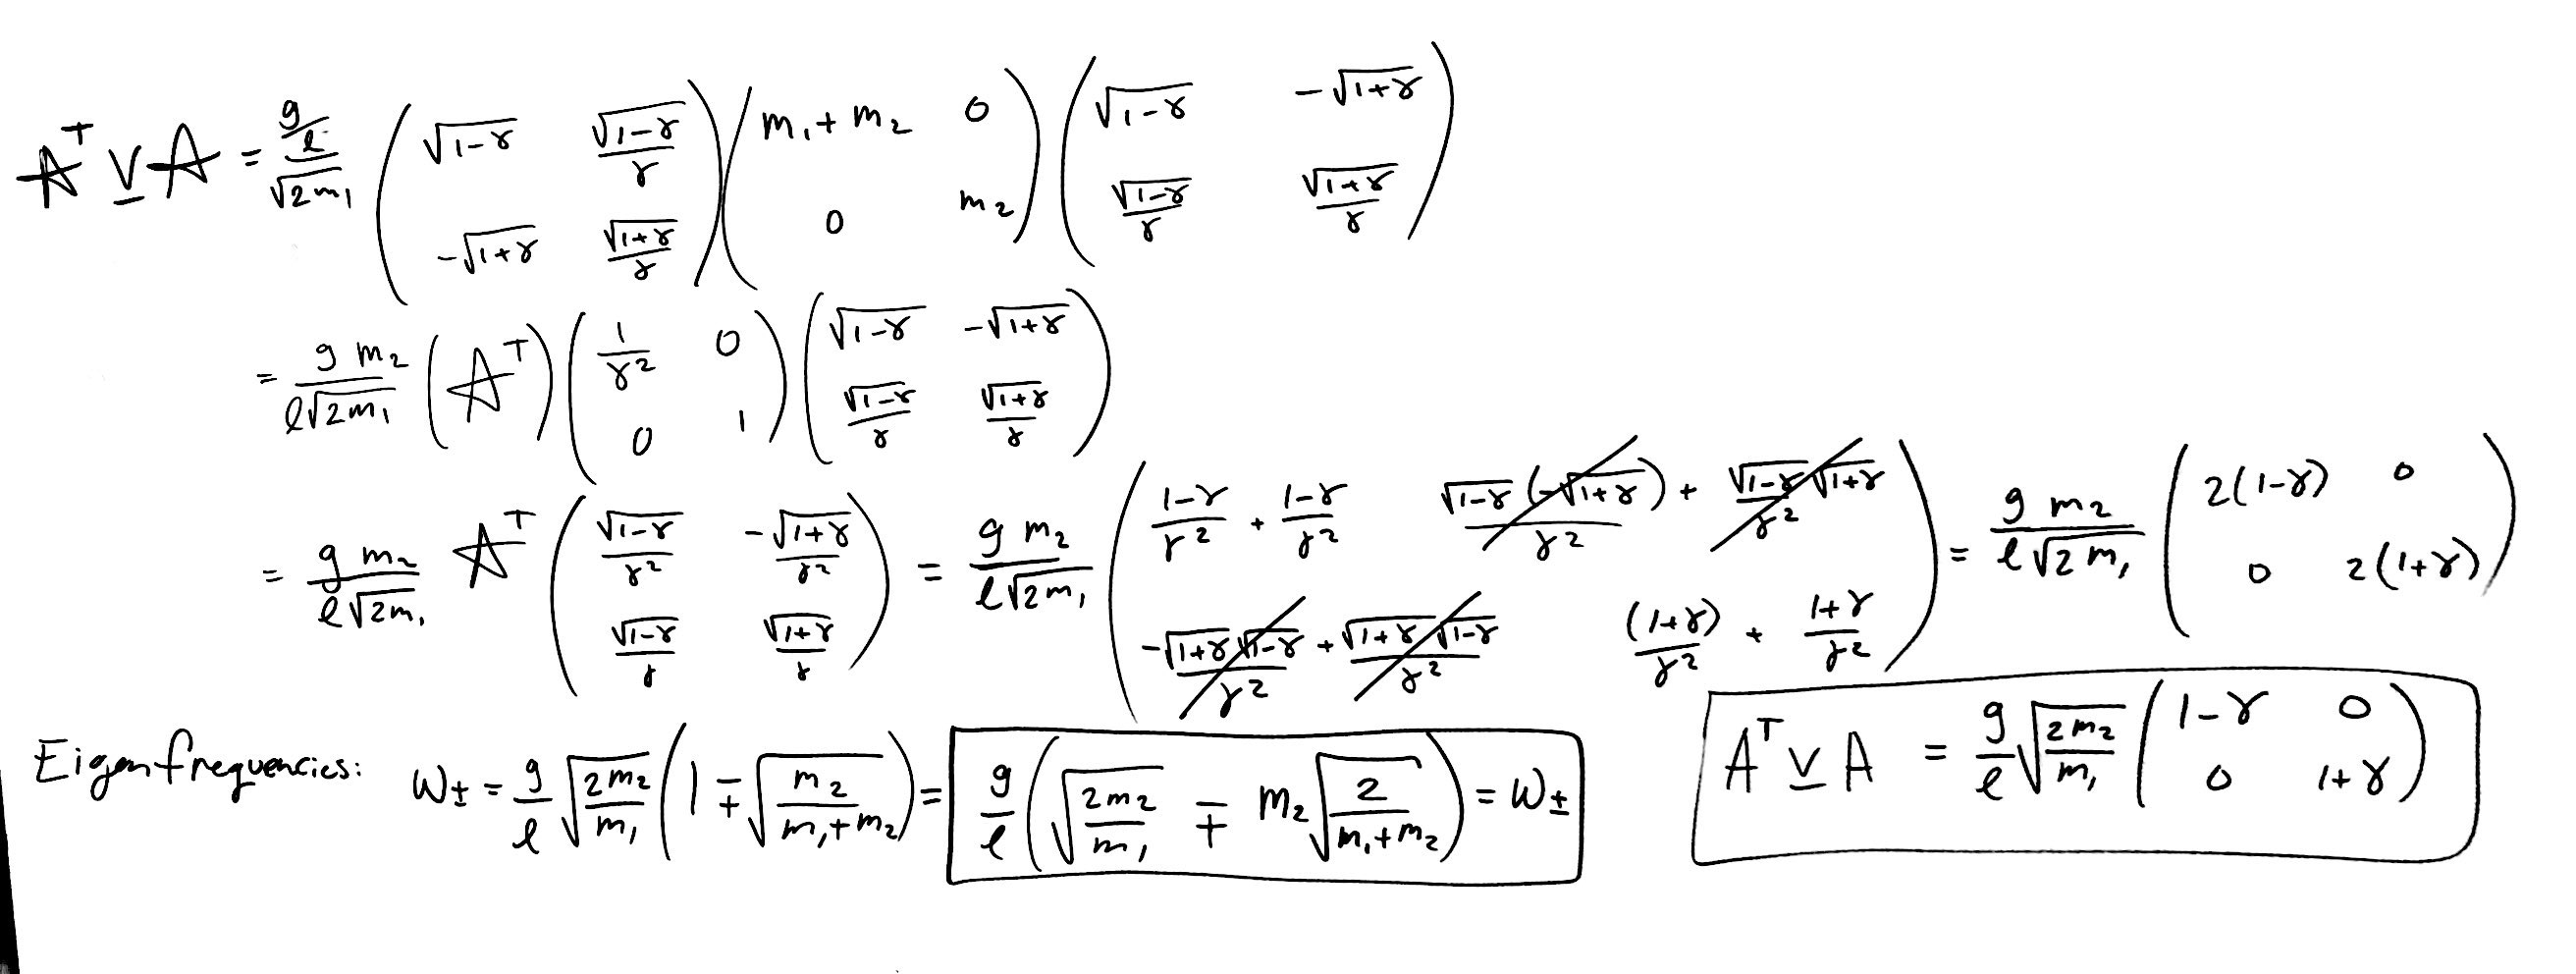 A^T V A = \frac{\frac{g}{l}}{\sqrt{2m_1}} \begin{pmatrix} \sqrt{1-γ} & \frac{\sqrt{1-γ}}{γ} \\ -\sqrt{1+γ} & \frac{\sqrt{1+γ}}{γ} \end{pmatrix} \begin{pmatrix} m_1+m_2 & 0 \\ 0 & m_2 \end{pmatrix} \begin{pmatrix} \sqrt{1-γ} & -\sqrt{1+γ} \\ \frac{\sqrt{1-γ}}{γ} & \frac{\sqrt{1+γ}}{γ} \end{pmatrix}
= \frac{g m_2}{l\sqrt{2m_1}} (A^T) \begin{pmatrix} \frac{1}{γ^2} & 0 \\ 0 & 1 \end{pmatrix} \begin{pmatrix} \sqrt{1-γ} & -\sqrt{1+γ} \\ \frac{\sqrt{1-γ}}{γ} & \frac{\sqrt{1+γ}}{γ} \end{pmatrix}
= \frac{g m_2}{l\sqrt{2m_1}} A^T \begin{pmatrix} \frac{\sqrt{1-γ}}{γ^2} & \frac{-\sqrt{1+γ}}{γ^2} \\ \frac{\sqrt{1-γ}}{γ} & \frac{\sqrt{1+γ}}{γ} \end{pmatrix} = \frac{g m_2}{l\sqrt{2m_1}} \begin{pmatrix} \frac{1-γ}{γ^2} + \frac{1-γ}{γ^2} & \frac{\sqrt{1-γ}(-\sqrt{1+γ})}{γ^2} + \frac{\sqrt{1-γ}\sqrt{1+γ}}{γ^2} \\ \frac{-\sqrt{1+γ}\sqrt{1-γ}}{γ^2} + \frac{\sqrt{1+γ}\sqrt{1-γ}}{γ^2} & \frac{(1+γ)}{γ^2} + \frac{1+γ}{γ^2} \end{pmatrix} = \frac{g m_2}{l\sqrt{2m_1}} \begin{pmatrix} 2(1-γ) & 0 \\ 0 & 2(1+γ) \end{pmatrix}
A^T V A = \frac{g}{l} \sqrt{\frac{2m_2}{m_1}} \begin{pmatrix} 1-γ & 0 \\ 0 & 1+γ \end{pmatrix}
Eigenfrequencies: ω_± = \frac{g}{l} \sqrt{\frac{2m_2}{m_1}} \left( 1 ∓ \sqrt{\frac{m_2}{m_1+m_2}} \right) = \frac{g}{l} \left( \sqrt{\frac{2m_2}{m_1}} ∓ m_2 \sqrt{\frac{2}{m_1+m_2}} \right) = ω_±